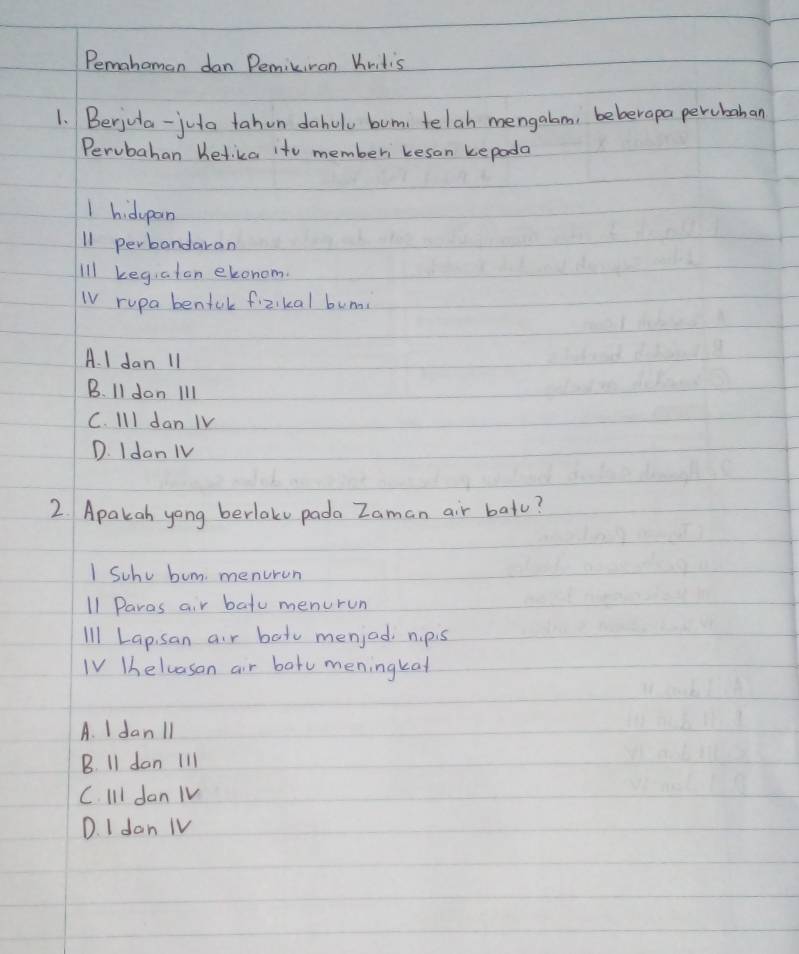 Pemahaman dan Pemikiran Kritis
1. Berjuta-juta tahun dahulu bumi telah mengalami beberapa perubahan
Perubahan Ketika itu memberi kesan kepada
I hidupan
II perbandaran
III kegiatan ekonomi
IV rupa bentuk fizikal bumi
A. I dan II
B. II dan III
C. III dan IV
D. I dan IV
2. Apakah yang berlaku pada Zaman air batu?
I Suhu bumi menurun
II Paras air batu menurun
III Lapisan air batu menjadi nipis
IV Keluasan air batu meningkat
A. I dan II
B. II dan III
C. III dan IV
D. I dan IV